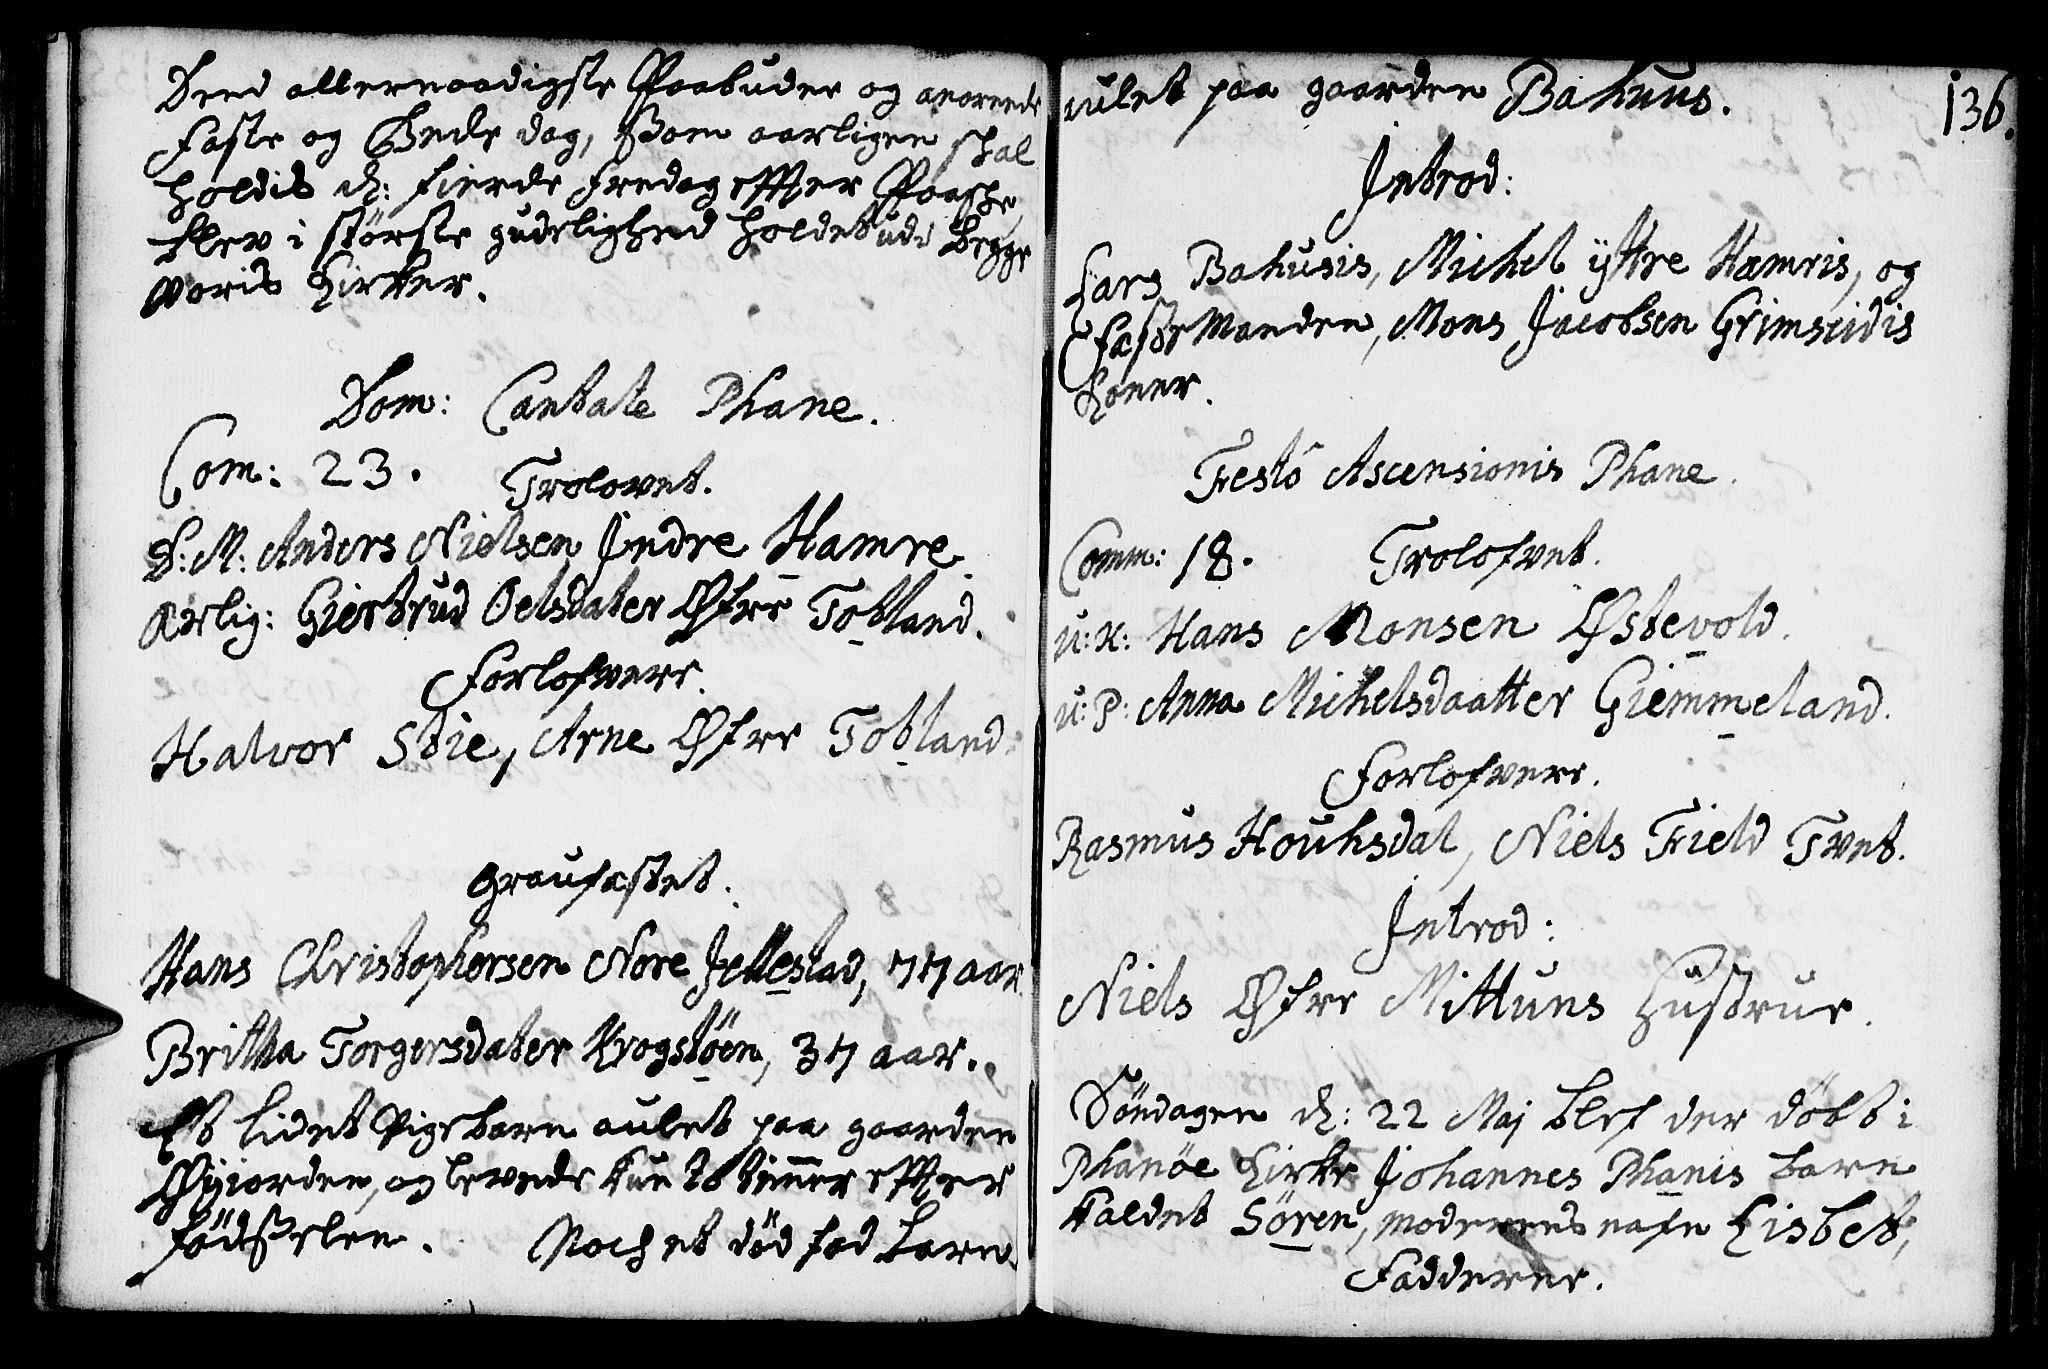 Dend allernaadigste Paabudne og anornede
faste og Bede dag, som aarligen schal
holdis d: fierde fredag effter Paasche,
blev i største gudelighed holdet udi begge
voris Kirker.
Dom: Cantate Phane.
Com: 23. Trolovet.
D: M: Anders Nielsen Indre Hamre
Ærlig: Giertrud Oelsdater Øfre Tobland.
Forlofvere.
Halvor Stie, Arne Øfre Tobland.
Graufæstet.
Hans Christophersen Nore Jellestad, 77 aar.
Brittha Torgersdater Krogstöen, 37 aar.
Et lidet Pigebarn aulet paa gaarden
Øyiorden, og levende kun to timer effter
födselen. Noch et död fød barn
aulet paa gaarden Bahuus.
136.
Introd:
Lars Bahusis, Michel yttre Hamris, og
Fæste Manden, Mons Jacobsen Grimseidis
Koner.
Festo Ascensionis Phane.
Comm: 18. Trolofvet.
U: K: Hans Monsen Østevold.
U: P: Anna Michelsdaatter Giemmeland.
Forlofvere.
Rasmus Houhsdal, Niels Field Tvet.
Introd:
Niels Øfre Mittuns Hustrue.
Söndagen d: 22 Maj blef der döbt i
Phanöe Kirke Johannes Phanis barn
kaldet Sören, moderens nafn Lisbet,
Fadderne.